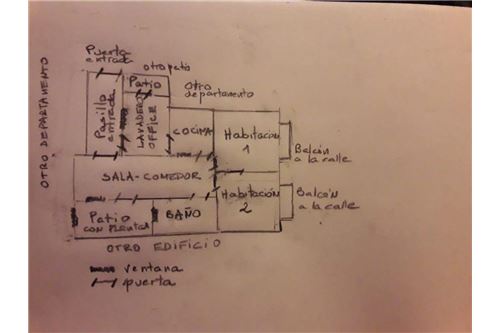 Puerta
entrada
otro patio
Patio
otro
departamento
OTRO DEPARTAMENTO
Pasillo
entrada
LAVADERO
OFFICE
COCINA
Habitación
1
Balcón
a la calle
SALA-COMEDOR
Habitación
2
Balcón
a la calle
Patio
CON PLANTA
BAÑO
OTRO EDIFICIO
ventana
puerta